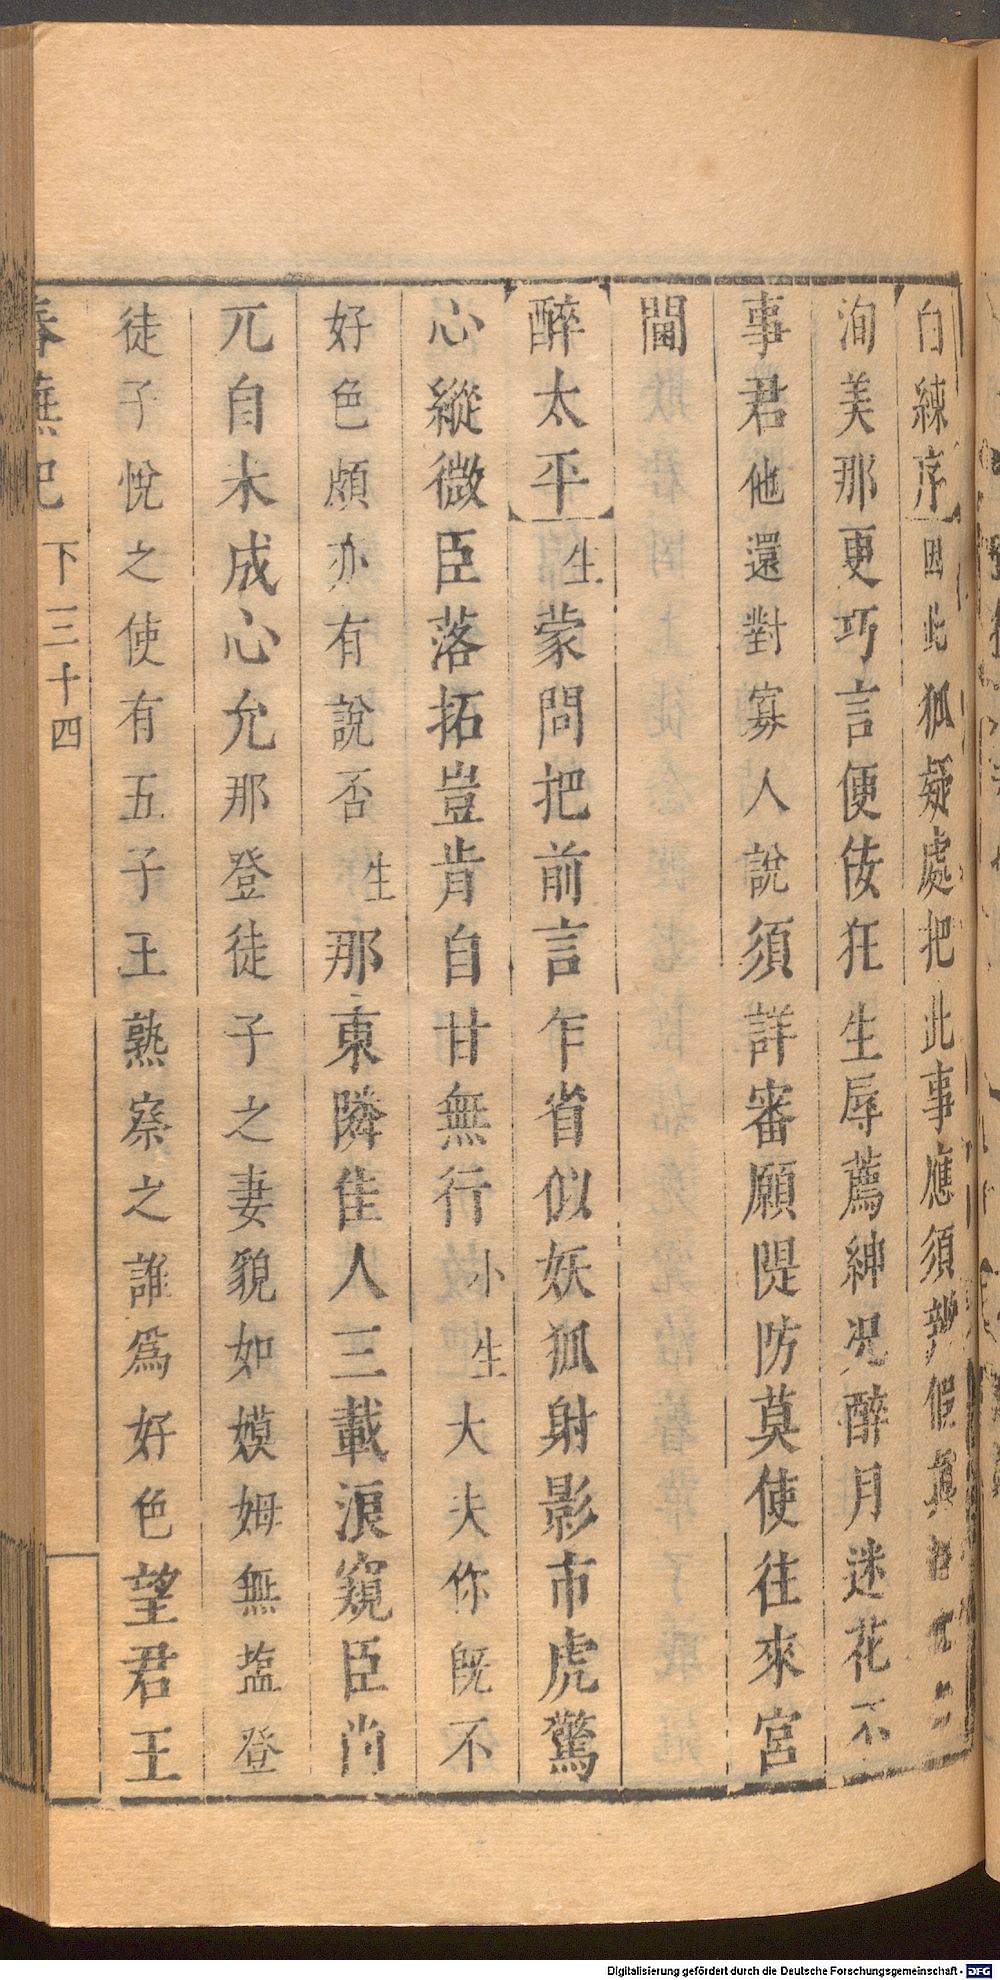 白練序因此狐疑處把此事應須辨假真
洵美那更巧言便佞狂生辱薦紳況醉月迷花不
事君他還對寡人說須詳審願隄防莫使徃來宮
闈
醉太平生蒙問把前言乍省似妖狐射影市虎驚
心縱微臣落拓豈肯自甘無行小生大夫你既不
好色頗亦有說否生那東隣佳人三載淚窺臣尚
兀自未成心允那登徒子之妻貌如嫫姆無盐登
徒子悅之使有五子王熟察之誰爲好色望君王
春蕪記 下 三十四
Digitalisierung gefördert durch die Deutsche Forschungsgemeinschaft - DFG